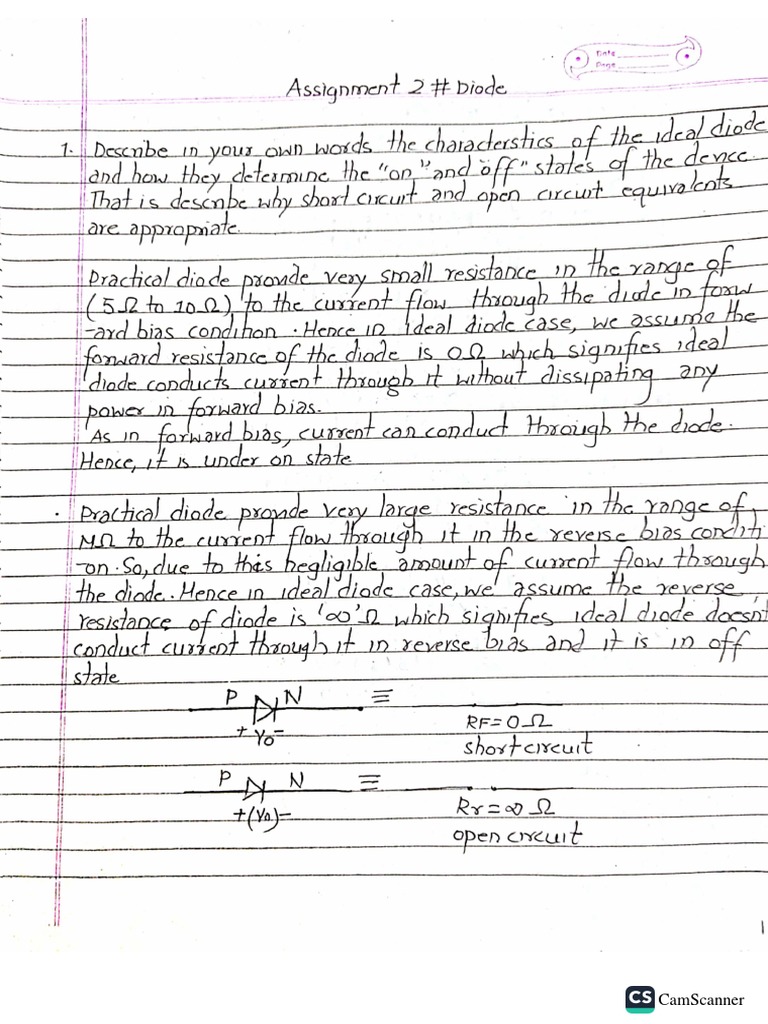 Date
Page
Assignment 2 # Diode
1. Describe in your own words the characterstics of the ideal diode
and how they determine the "on" and "off" states of the device.
That is describe why short circuit and open circuit equivalents
are appropriate.
Practical diode provide very small resistance in the range of
(5Ω to 10Ω), to the current flow through the diode in forw
-ard bias condition. Hence in ideal diode case, we assume the
forward resistance of the diode is 0Ω which signifies ideal
diode conducts current through it without dissipating any
power in forward bias.
As in forward bias, current can conduct through the diode.
Hence, it is under on state
. Practical diode provide very large resistance in the range of
MΩ to the current flow through it in the reverse bias conditi
-on. So, due to this negligible amount of current flow through
the diode. Hence in ideal diode case, we assume the reverse
resistance of diode is '∞'Ω which signifies ideal diode doesn't
conduct current through it in reverse bias and it is in off
state
P N ≡
RF=0Ω
+ VD -
short circuit
P N ≡
Rr=∞Ω
+(VD)-
open circuit
1
CS CamScanner